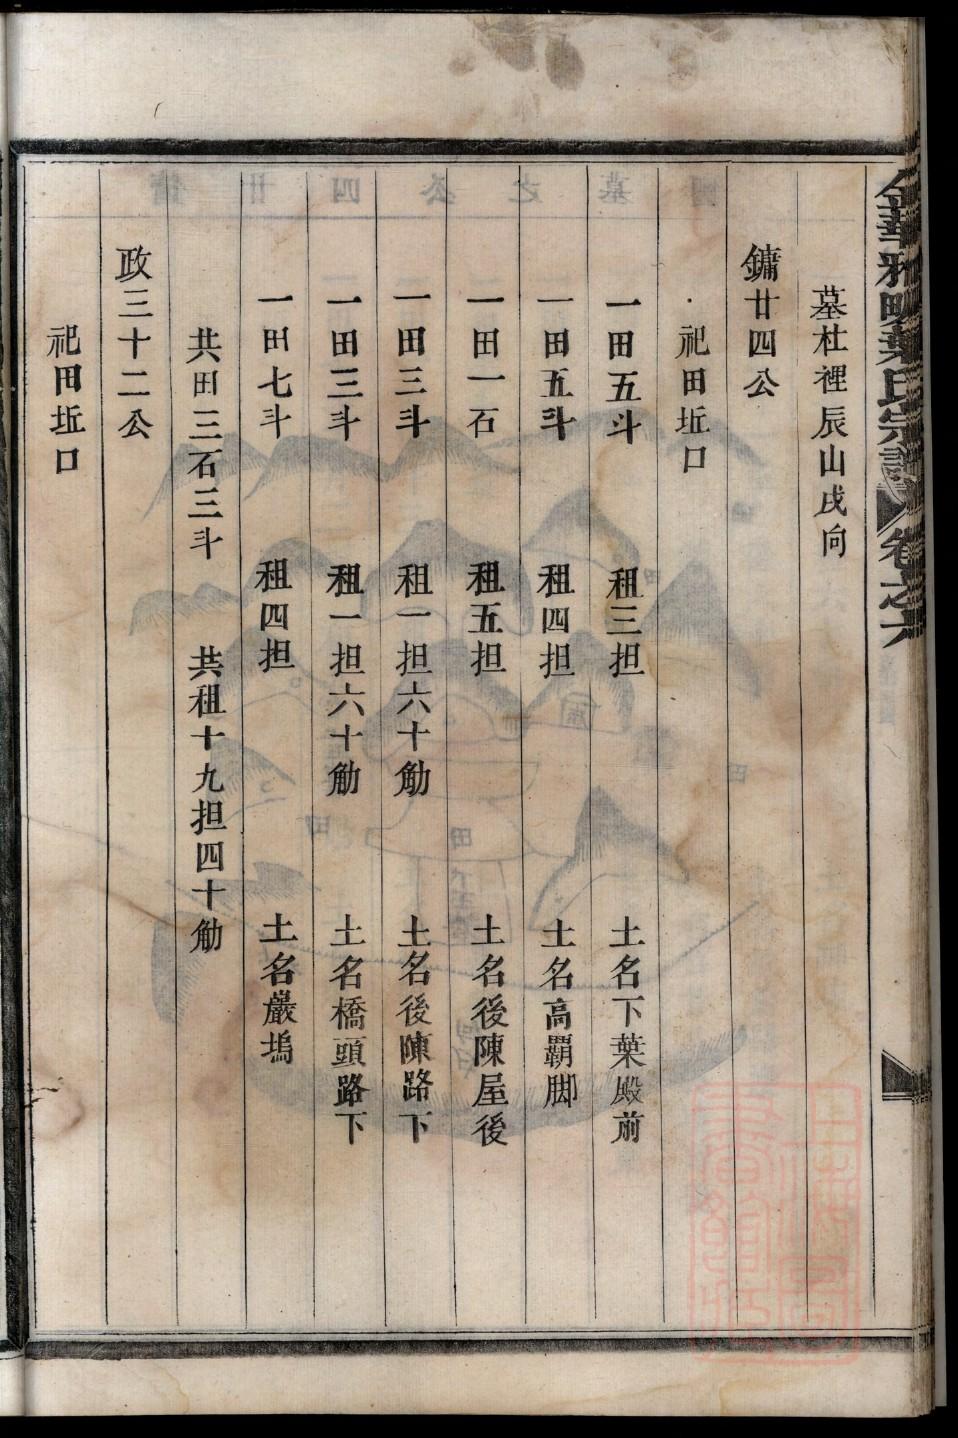 金華雅畈葉氏宗譜 卷之六
墓杜裡辰山戌向
鏞廿四公
祀田坵口
一田五斗 租三担 土名下葉殿前
一田五斗 租四担 土名高覇脚
一田一石 租五担 土名後陳屋後
一田三斗 租一担六十觔 土名後陳路下
一田三斗 租一担六十觔 土名橋頭路下
一田七斗 租四担 土名巖塢
共田三石三斗 共租十九担四十觔
政三十二公
祀田坵口